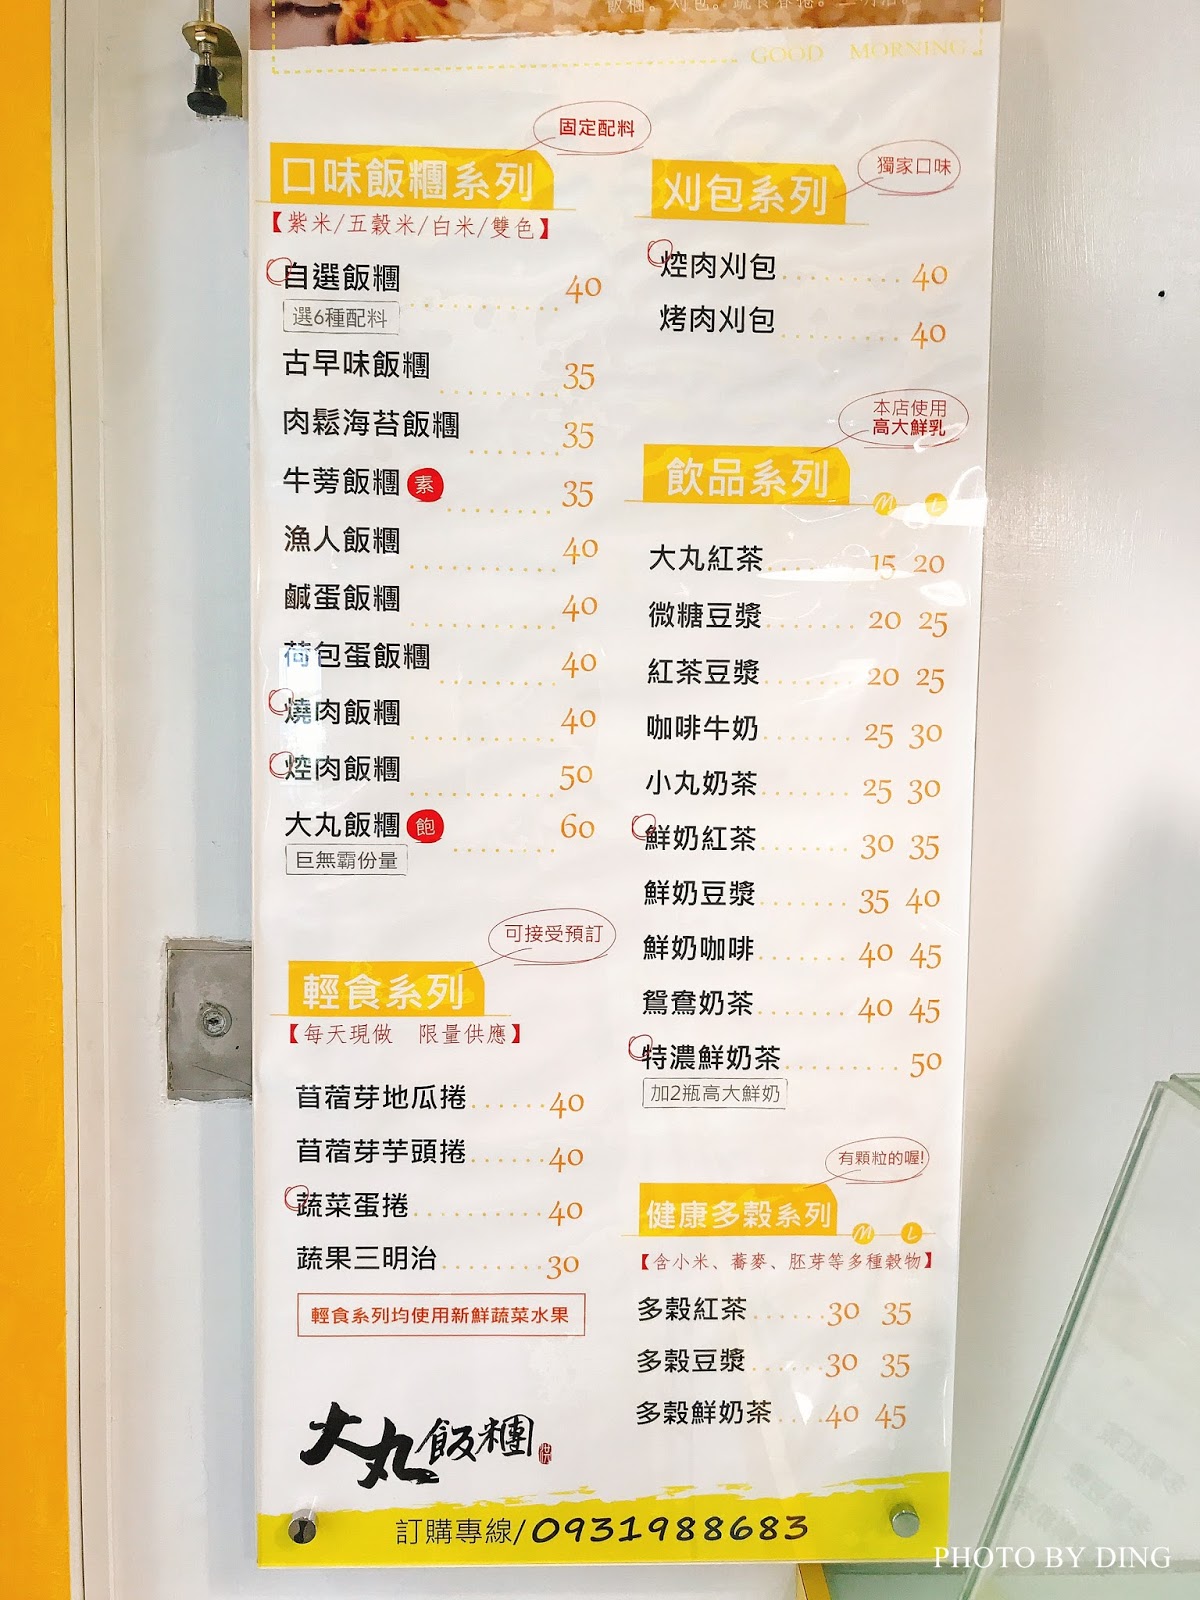 飯糰。刈包。蔬食春捲。三明治。
GOOD MORNING
固定配料
口味飯糰系列
【紫米/五穀米/白米/雙色】
自選飯糰 40
選6種配料
古早味飯糰 35
肉鬆海苔飯糰 35
牛蒡飯糰 素 35
漁人飯糰 40
鹹蛋飯糰 40
荷包蛋飯糰 40
燒肉飯糰 40
焢肉飯糰 50
大丸飯糰 飽 60
巨無霸份量
可接受預訂
輕食系列
【每天現做 限量供應】
苜蓿芽地瓜捲 40
苜蓿芽芋頭捲 40
蔬菜蛋捲 40
蔬果三明治 30
輕食系列均使用新鮮蔬菜水果
大丸飯糰
獨家口味
刈包系列
焢肉刈包 40
烤肉刈包 40
本店使用
高大鮮乳
飲品系列
M L
大丸紅茶 15 20
微糖豆漿 20 25
紅茶豆漿 20 25
咖啡牛奶 25 30
小丸奶茶 25 30
鮮奶紅茶 30 35
鮮奶豆漿 35 40
鮮奶咖啡 40 45
鴛鴦奶茶 40 45
特濃鮮奶茶 50
加2瓶高大鮮奶
有顆粒的喔!
健康多穀系列
M L
【含小米、蕎麥、胚芽等多種穀物】
多穀紅茶 30 35
多穀豆漿 30 35
多穀鮮奶茶 40 45
訂購專線/0931988683
PHOTO BY DING